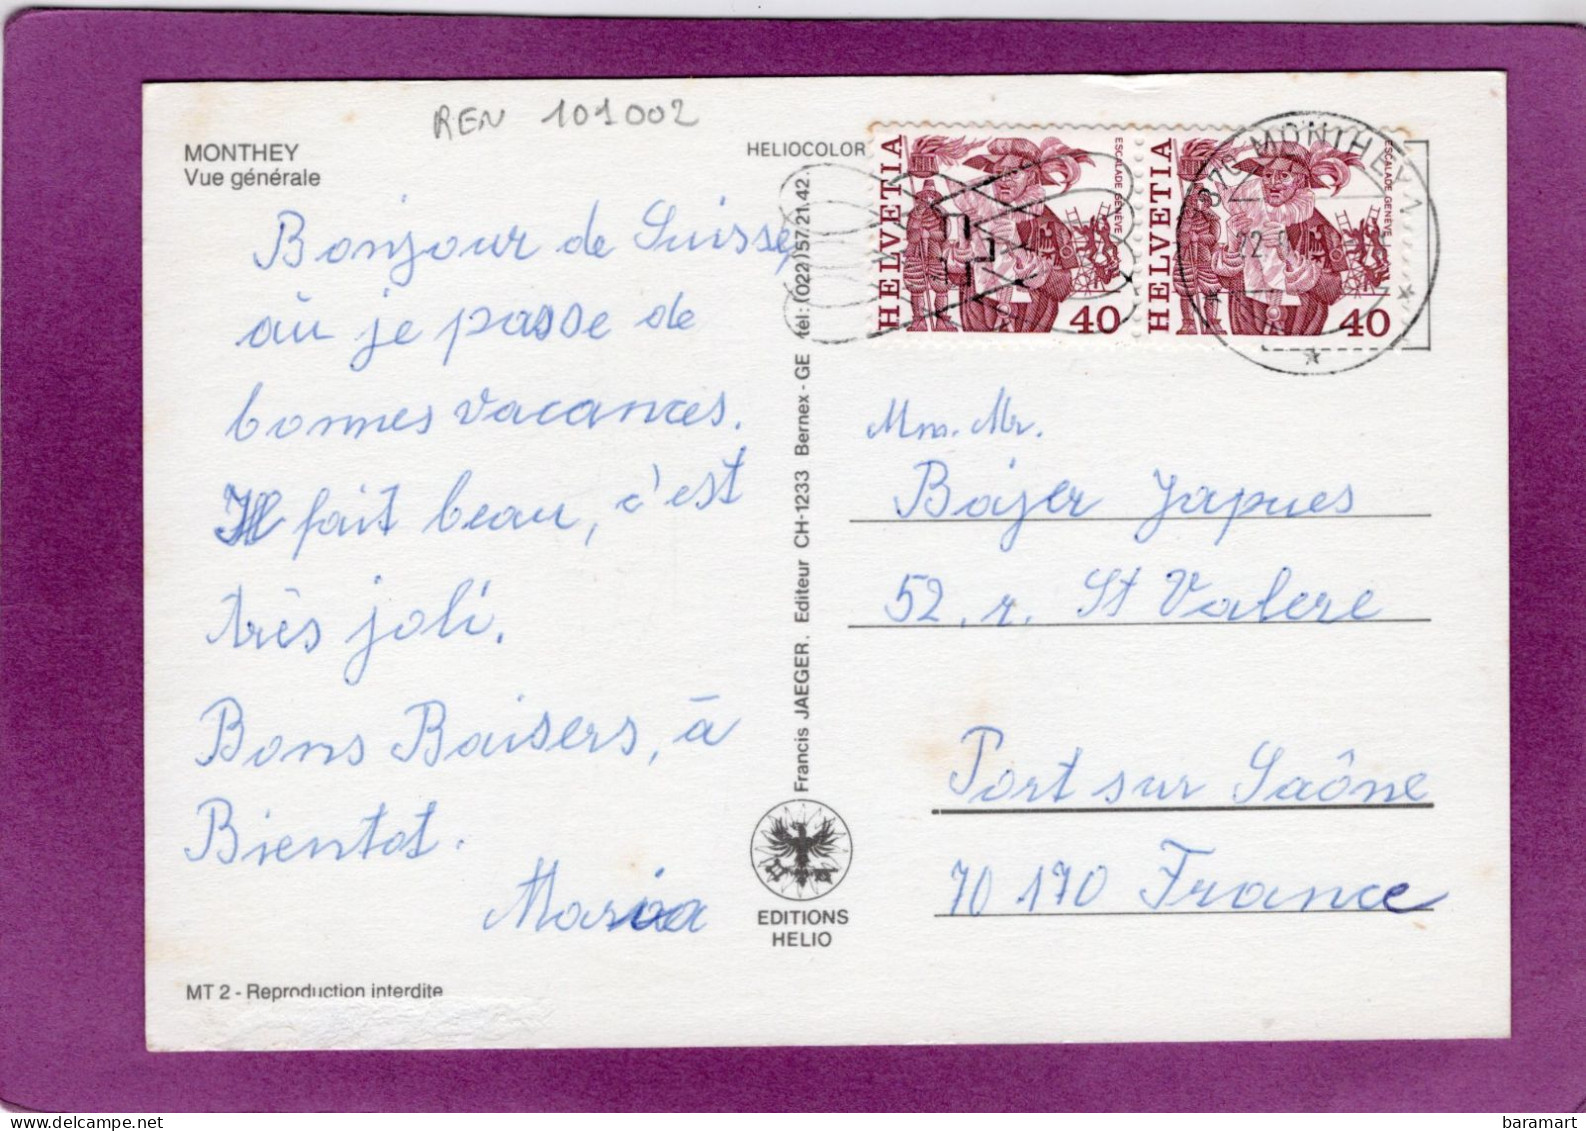 REN 101002
MONTHEY
Vue générale
HELIOCOLOR
Bonjour de Suisse,
où je passe de
bonnes vacances.
Il fait beau, c'est
très joli.
Bons Baisers, à
Bientot.
Maria
MT 2 - Reproduction interdite
Francis JAEGER. Editeur CH-1233 Bernex - GE tél: (022) 57.21.42.
EDITIONS
HELIO
HELVETIA
ESCALADE GENÈVE
40
HELVETIA
ESCALADE GENÈVE
40
1870 MONTHEY 1
22.
Mm. Mr.
Bajer Jaques
52, r. St Valere
Port sur Saône
70170 France
baramart